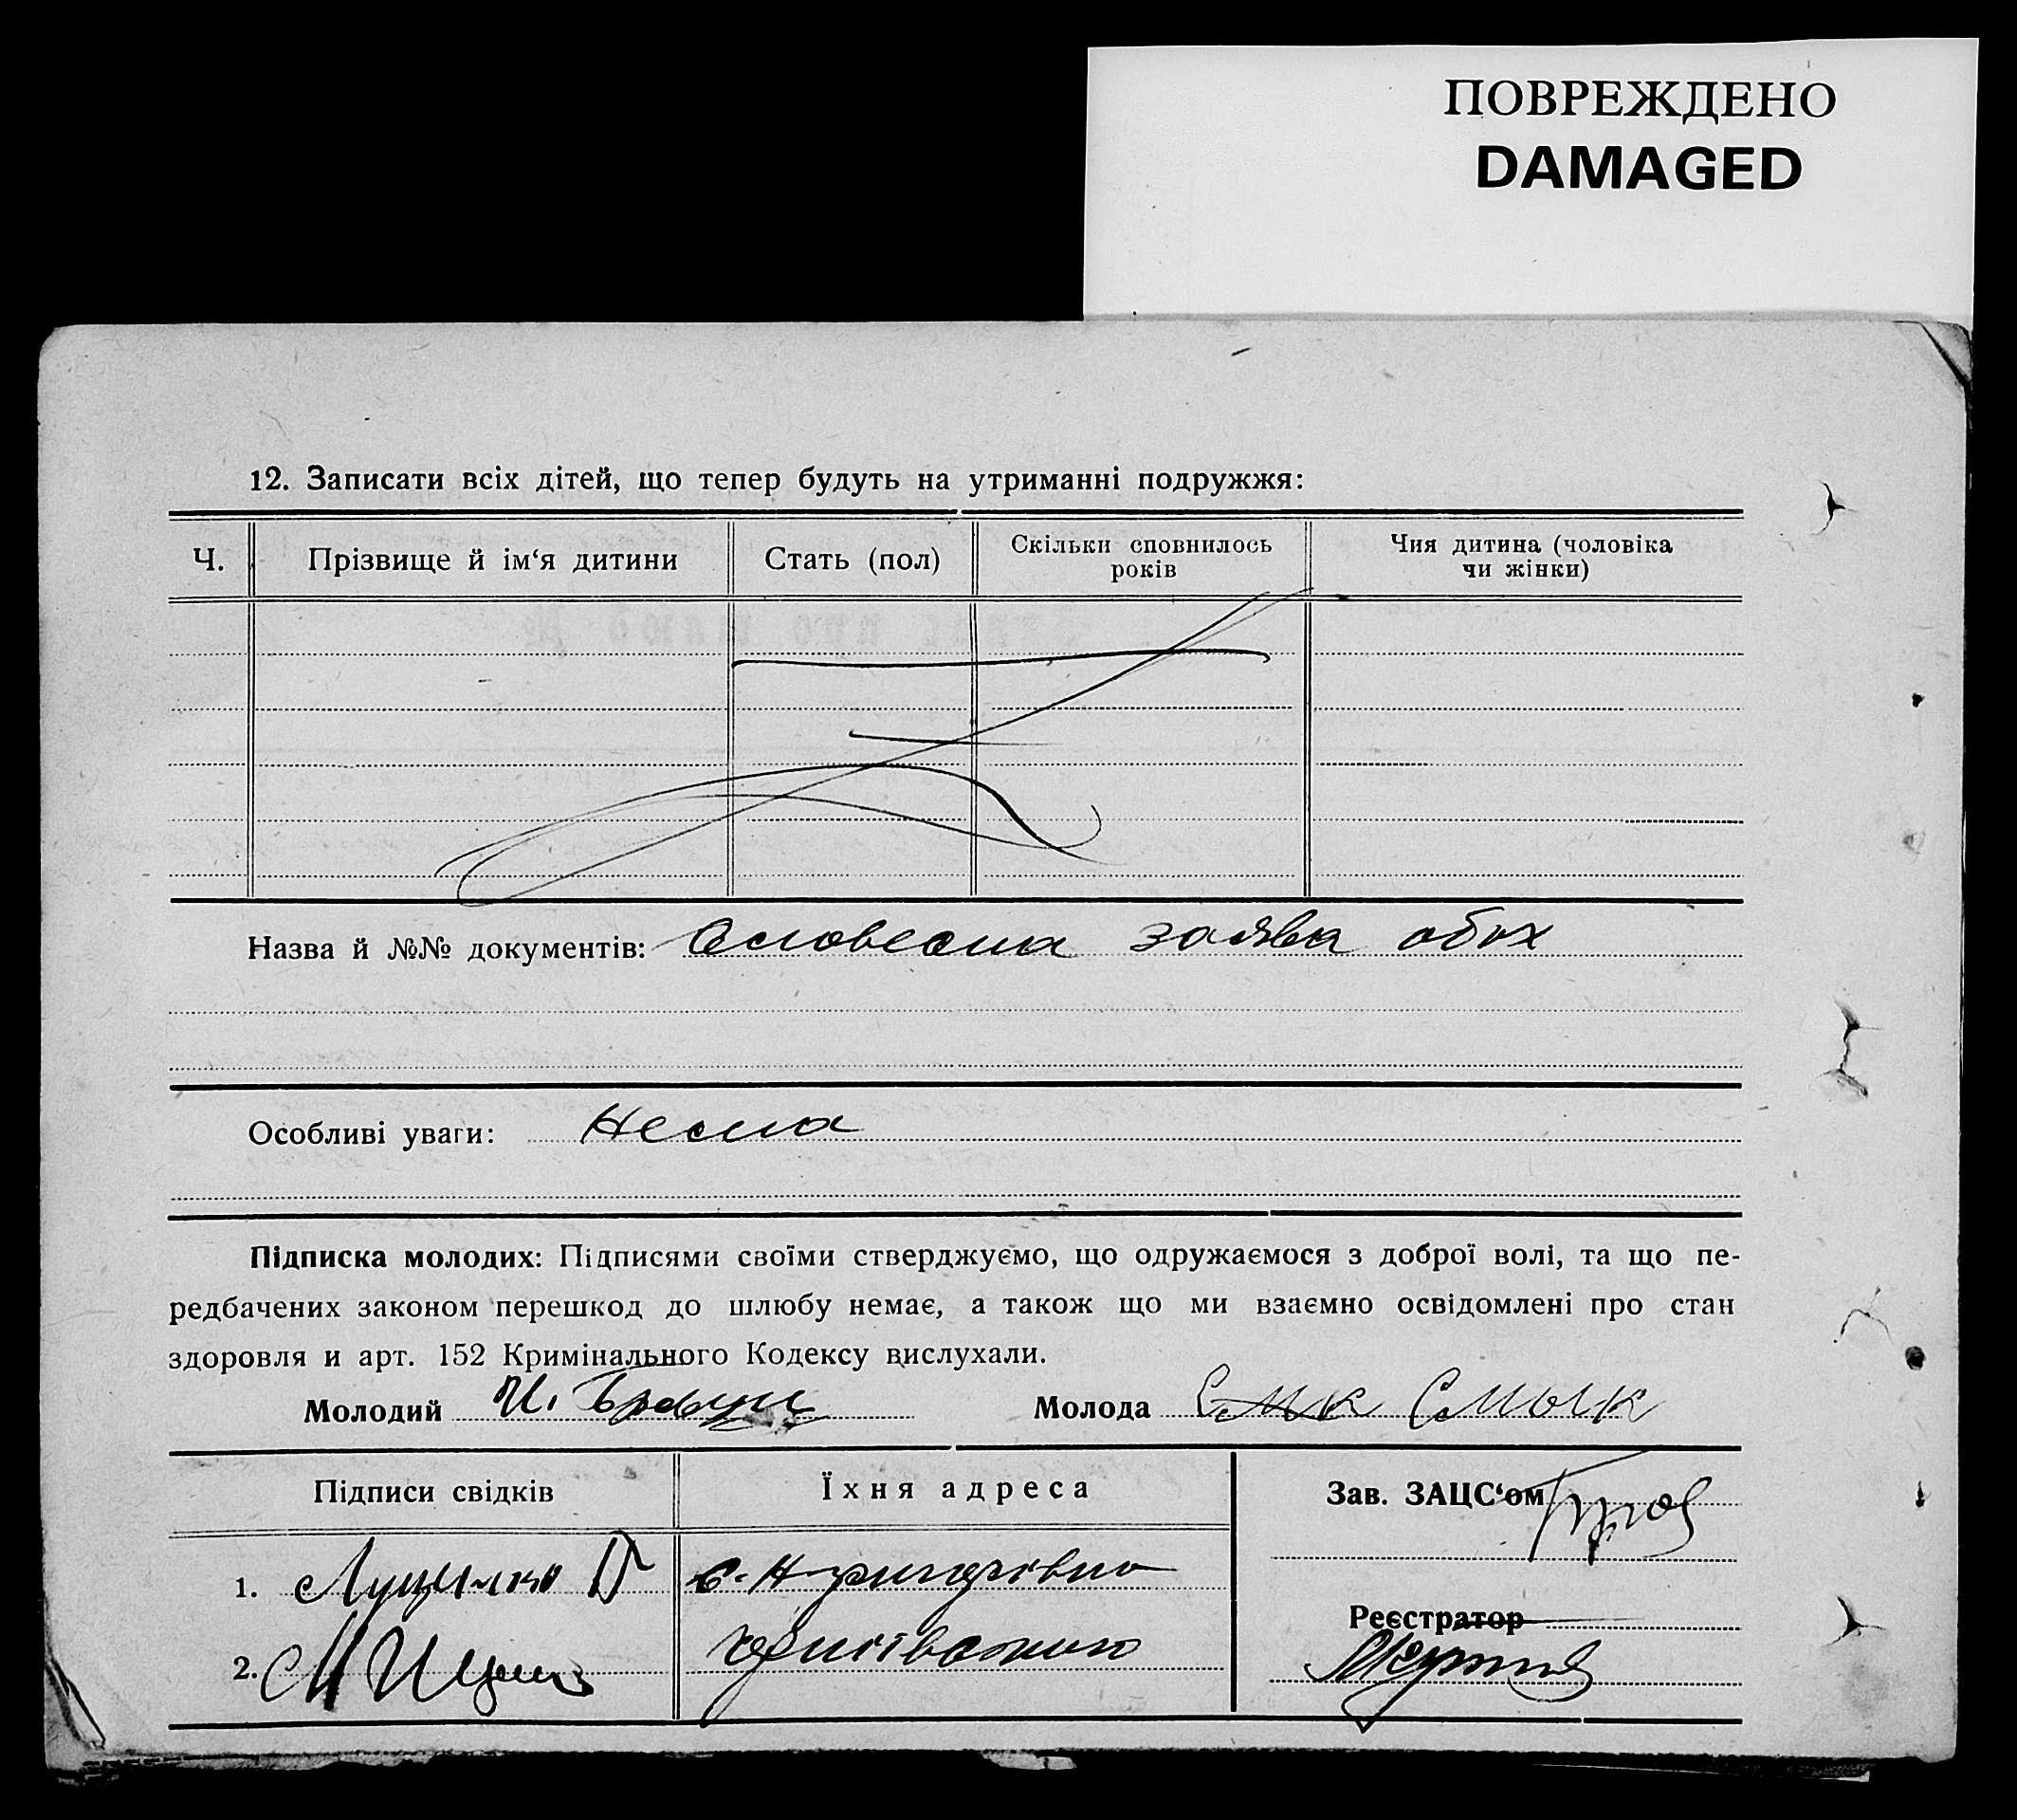 ПОВРЕЖДЕНО
DAMAGED
12. Записати всіх дітей, що тепер будуть на утриманні подружжя:
Ч. Прізвище й ім‘я дитини Стать (пол) Скільки сповнилось років Чия дитина (чоловіка чи жінки)
Назва й №№ документів: Словесна заява обох
Особливі уваги: Нема
Підписка молодих: Підписями своїми стверджуємо, що одружаємося з доброї волі, та що пе-
редбачених законом перешкод до шлюбу немає, а також що ми взаємно освідомлені про стан
здоровля и арт. 152 Кримінального Кодексу вислухали.
Молодий И. Молода Смик Смык
Підписи свідків Їхня адреса Зав. ЗАЦС‘ом
1. с.
Реєстратор
2.